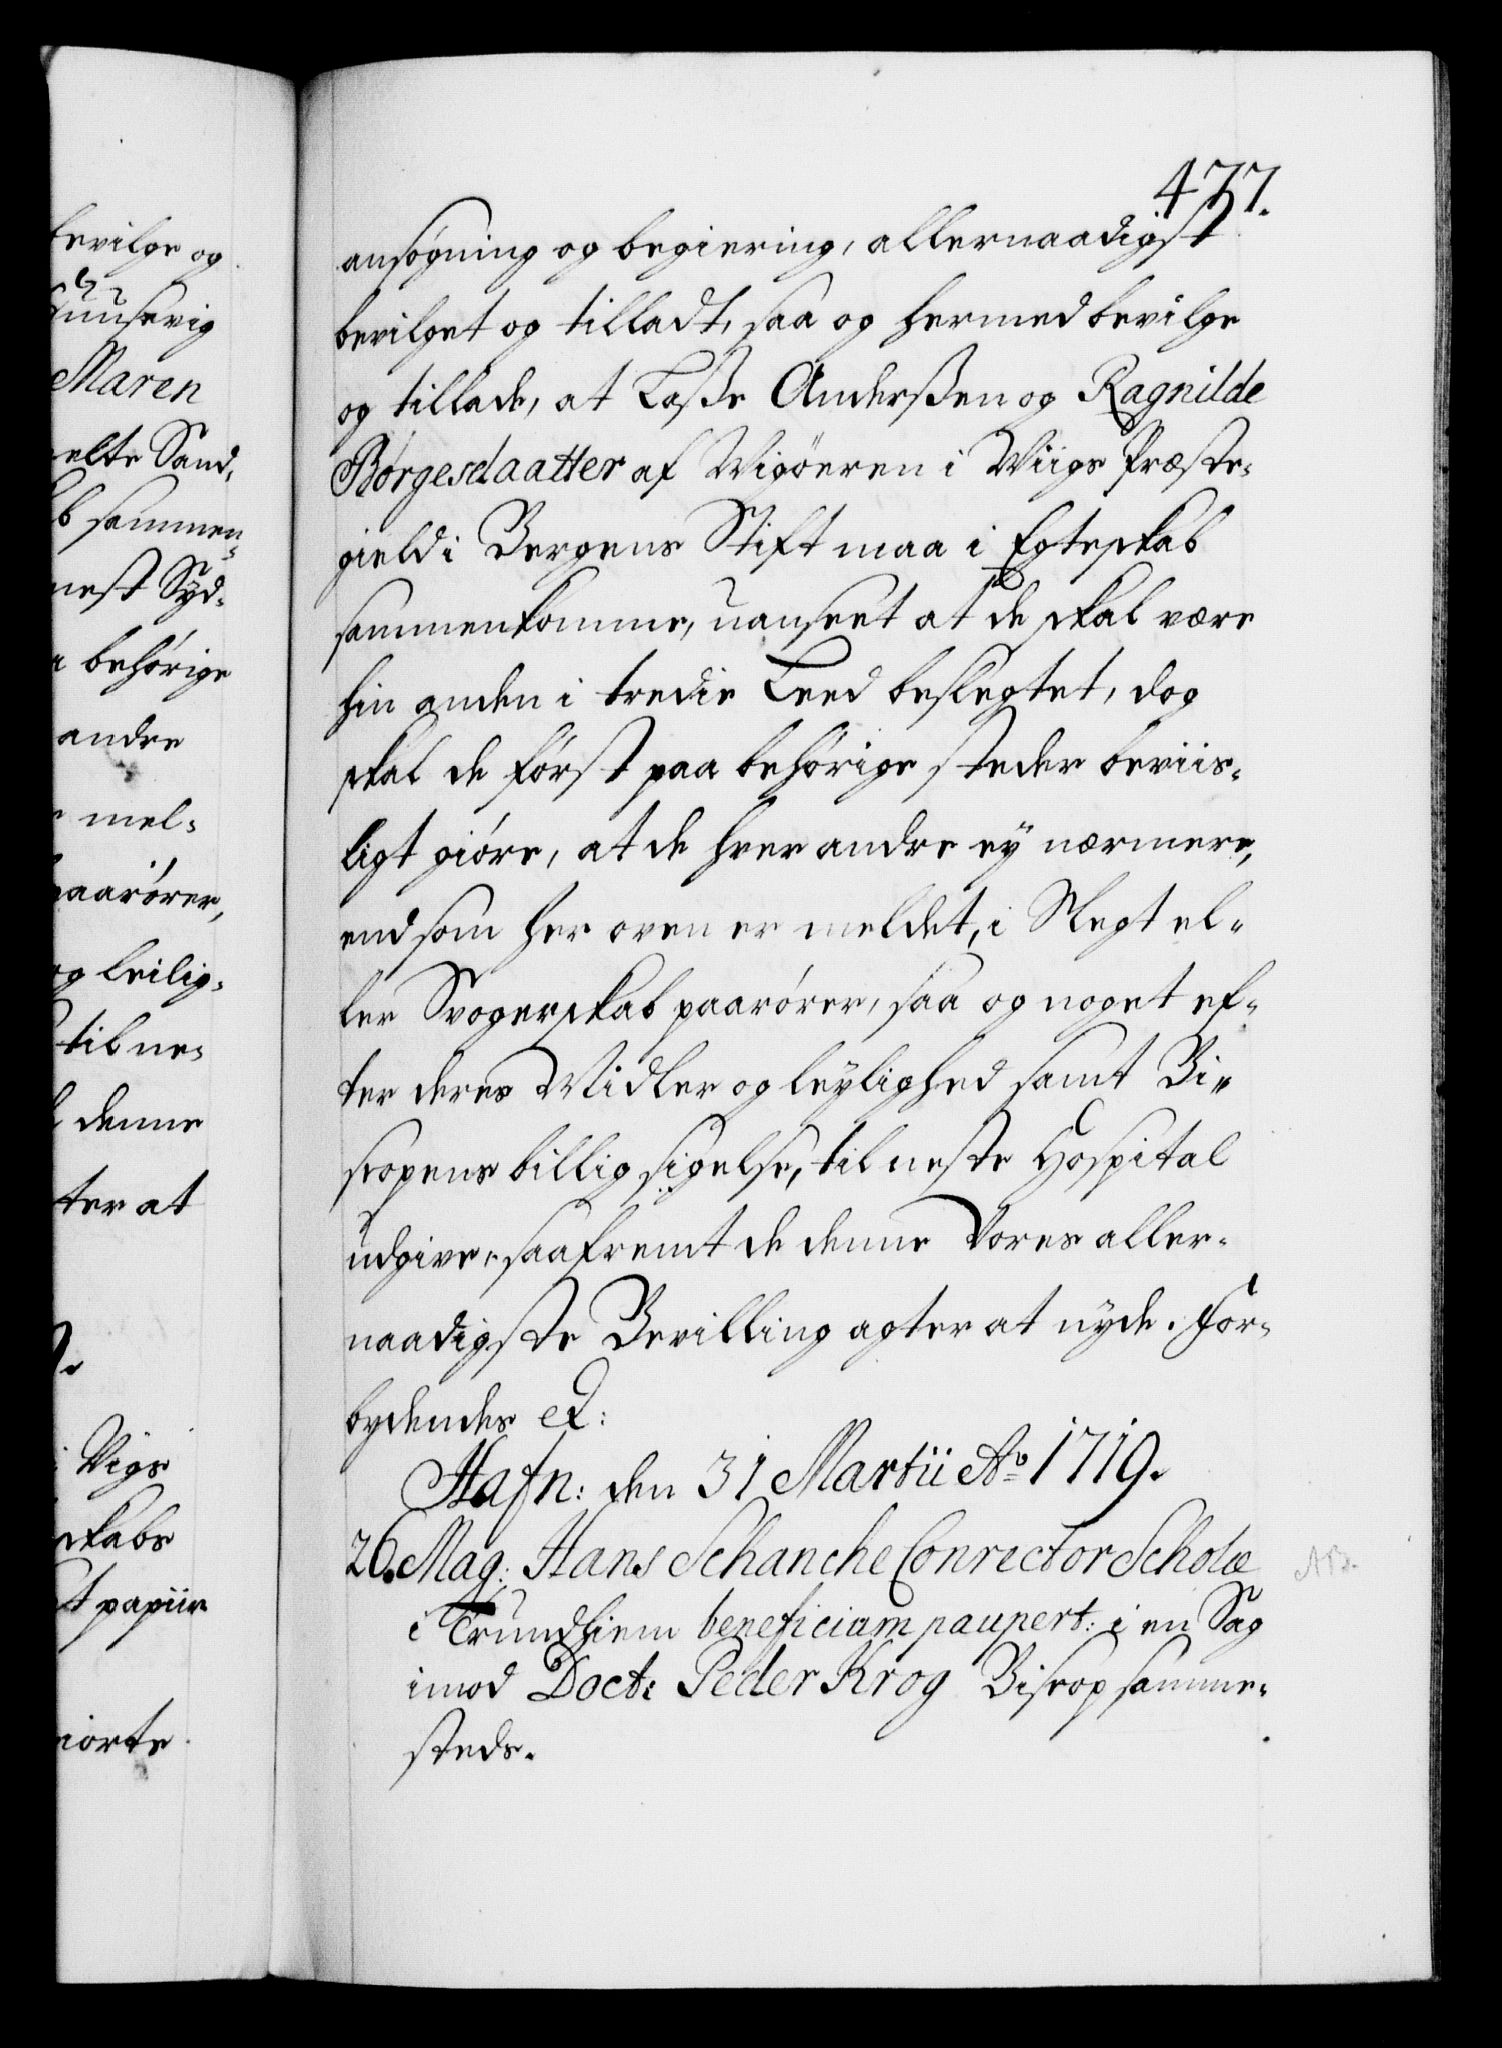 477.
ansøgning og begiering, allernaadigst
bevilget og tilladt, saa og hermed bevilge
og tillade, at Laße Anderßen og Ragnilde
Børgesdaatter af Wigøeren i Wiigs Præste-
gield i Bergens Stift maa i Egteskab
sammenkomme, uanseet at de skal være
hin anden i tredie Leed beslegtet, dog
skal de først paa behørige steder beviis-
ligt giøre, at de hver andre ey nærmere,
end som her oven er meldet, i Slegt el-
ler Svogerskab paarører, saa og noget ef-
ter deres Midler og leylighed samt Bi-
scopens billig sigelse, til neste Hospital
udgive, saafremt de denne Vores aller-
naadigste Bevilling agter at nyde. For-
bydendes etc:
Hafn: den 31 Martii Ao 1719.
26. Mag: Hans Schanche Conrector Scholæ
i Trundhiem beneficium paupert: i en Sag
imod Doct: Peder Krog Biscop samme-
steds.
bevilge og
Maren
elte Sand-
b sammen-
nest Syd-
behørige
andre
mel-
paarører,
og leilig-
til ne-
denne
ter at
i Vigs
skabs
t papiir
iorte